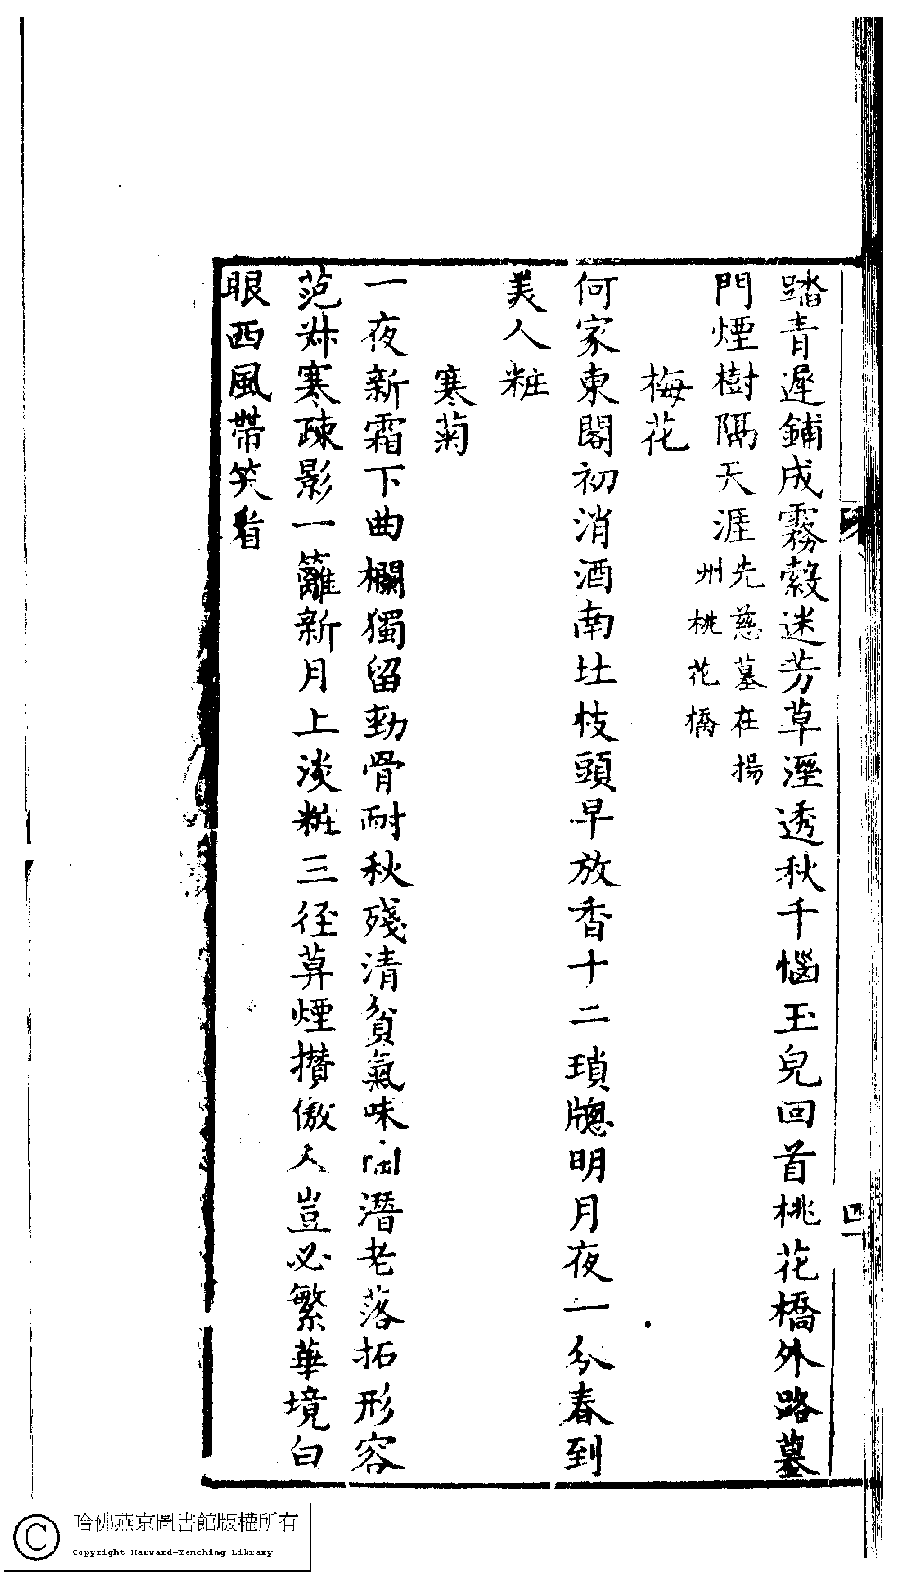 踏青遲鋪成霧縠迷芳草溼透秋千惱玉兒回首桃花橋外路墓
門煙樹隔天涯先慈墓在揚
州桃花橋
梅花
何家東閣初消酒南北枝頭早放香十二瑣牕明月夜一分春到
美人粧
寒菊
一夜新霜下曲欄獨留勁骨耐秋殘清貧氣味陶潛老落拓形容
范叔寒疎影一籬新月上淡粧三徑莫煙攢傲人豈必繁華境白
眼西風帶笑看
四
哈佛燕京圖書館版權所有
Copyright Harvard-Yenching Library